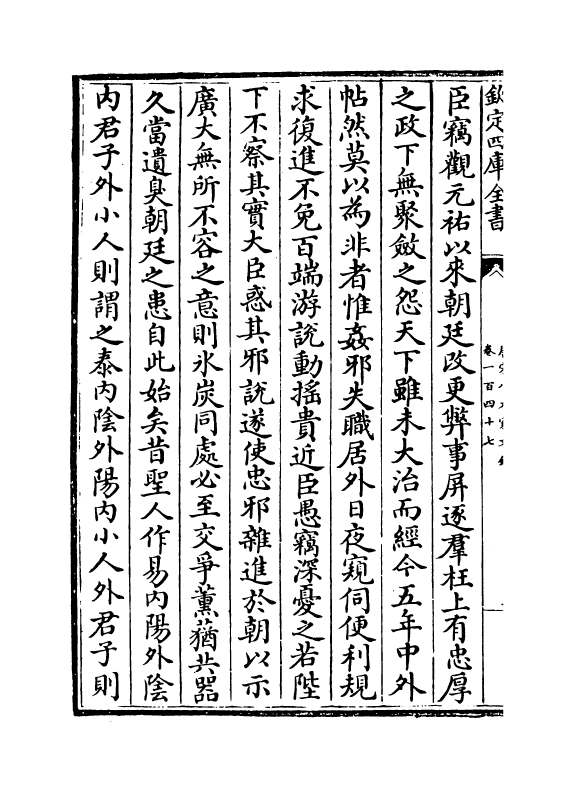 欽定四庫全書
卷一百四十七
臣竊觀元祐以來朝廷改更弊事屏逐羣枉上有忠厚
之政下無聚斂之怨天下雖未大治而經今五年中外
帖然莫以為非者惟姦邪失職居外日夜窺伺便利規
求復進不免百端游說動搖貴近臣愚竊深憂之若陛
下不察其實大臣惑其邪說遂使忠邪雜進於朝以示
廣大無所不容之意則氷炭同處必至交爭薰蕕共器
久當遺臭朝廷之患自此始矣昔聖人作易內陽外陰
內君子外小人則謂之泰內陰外陽內小人外君子則